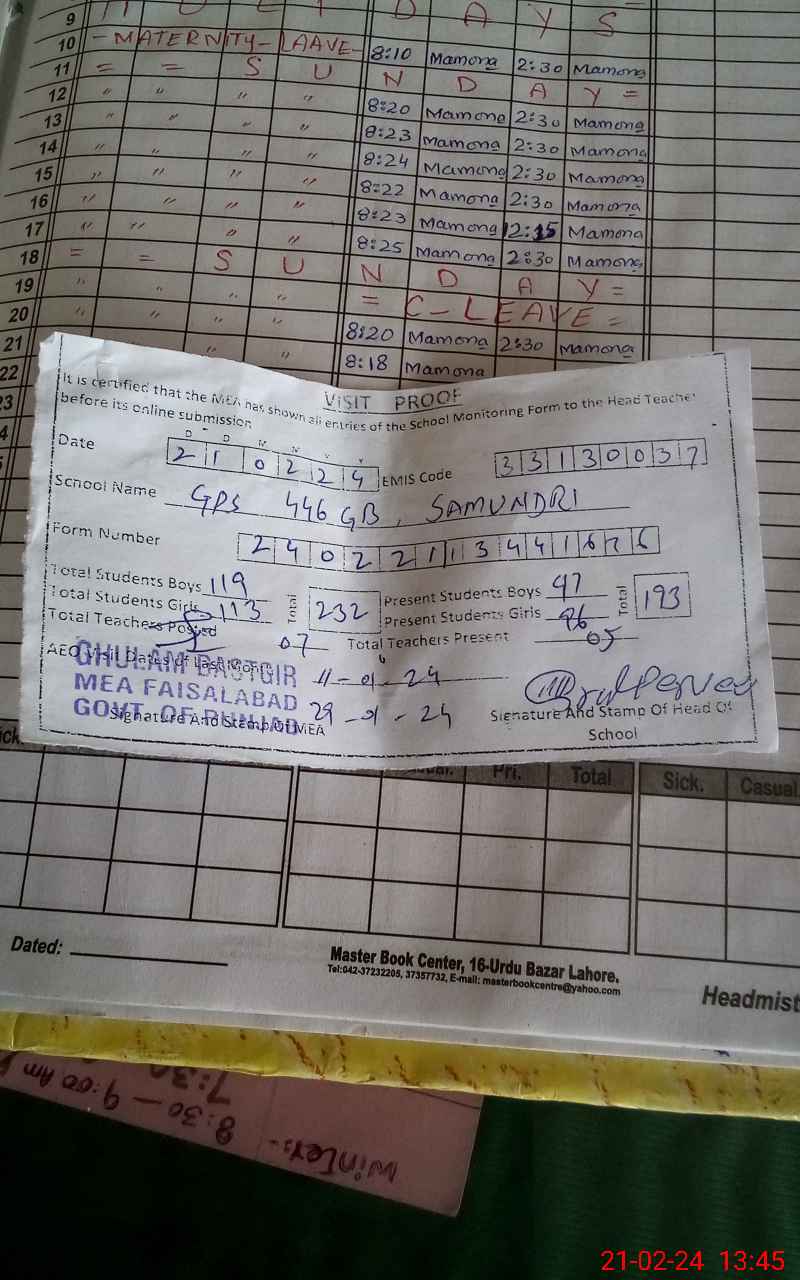 9 H O L I D A Y S
10 - MATERNITY - LAAVE - 8:10 Mamona 2:30 Mamona
11 = = S U N D A Y =
12 " " " " 8:20 Mamona 2:30 Mamona
13 " " " " 8:23 Mamona 2:30 Mamona
14 " " " " 8:24 Mamona 2:30 Mamona
15 " " " " 8:22 Mamona 2:30 Mamona
16 " " " " 8:23 Mamona 12:15 Mamona
17 " " " " 8:25 Mamona 2:30 Mamona
18 = = S U N D A Y =
19 " " " " = C-LEAVE =
20 " " " " 8:20 Mamona 2:30 Mamona
21 " " 8:18 Mamona
22
23
VISIT PROOF
It is certified that the MEA has shown all entries of the School Monitoring Form to the Head Teacher
before its online submission
D D M M Y Y
Date 2 1 0 2 2 4 EMIS Code 3 3 1 3 0 0 3 7
School Name GPS 446 GB, SAMUNDRI
Form Number 2 4 0 2 2 1 1 3 4 4 1 6 7 6
Total Students Boys 119 Total 232 Present Students Boys 97 Total 193
Total Students Girls 113 Present Students Girls 96
Total Teachers Posted 07 Total Teachers Present 05
AEO Visit Dates of Last Month 11-01-24
GHULAM DASTGIR
MEA FAISALABAD
GOVT. OF PUNJAB 29-01-24
Signature And Stamp Of MEA
Signature And Stamp Of Head Of
School
Pri. Total Sick. Casual
Dated:
Master Book Center, 16-Urdu Bazar Lahore.
Tel:042-37232205, 37357732, E-mail: masterbookcentre@yahoo.com
Headmist
7:30
8:30 - 9:00 Am
Winter:-
21-02-24 13:45